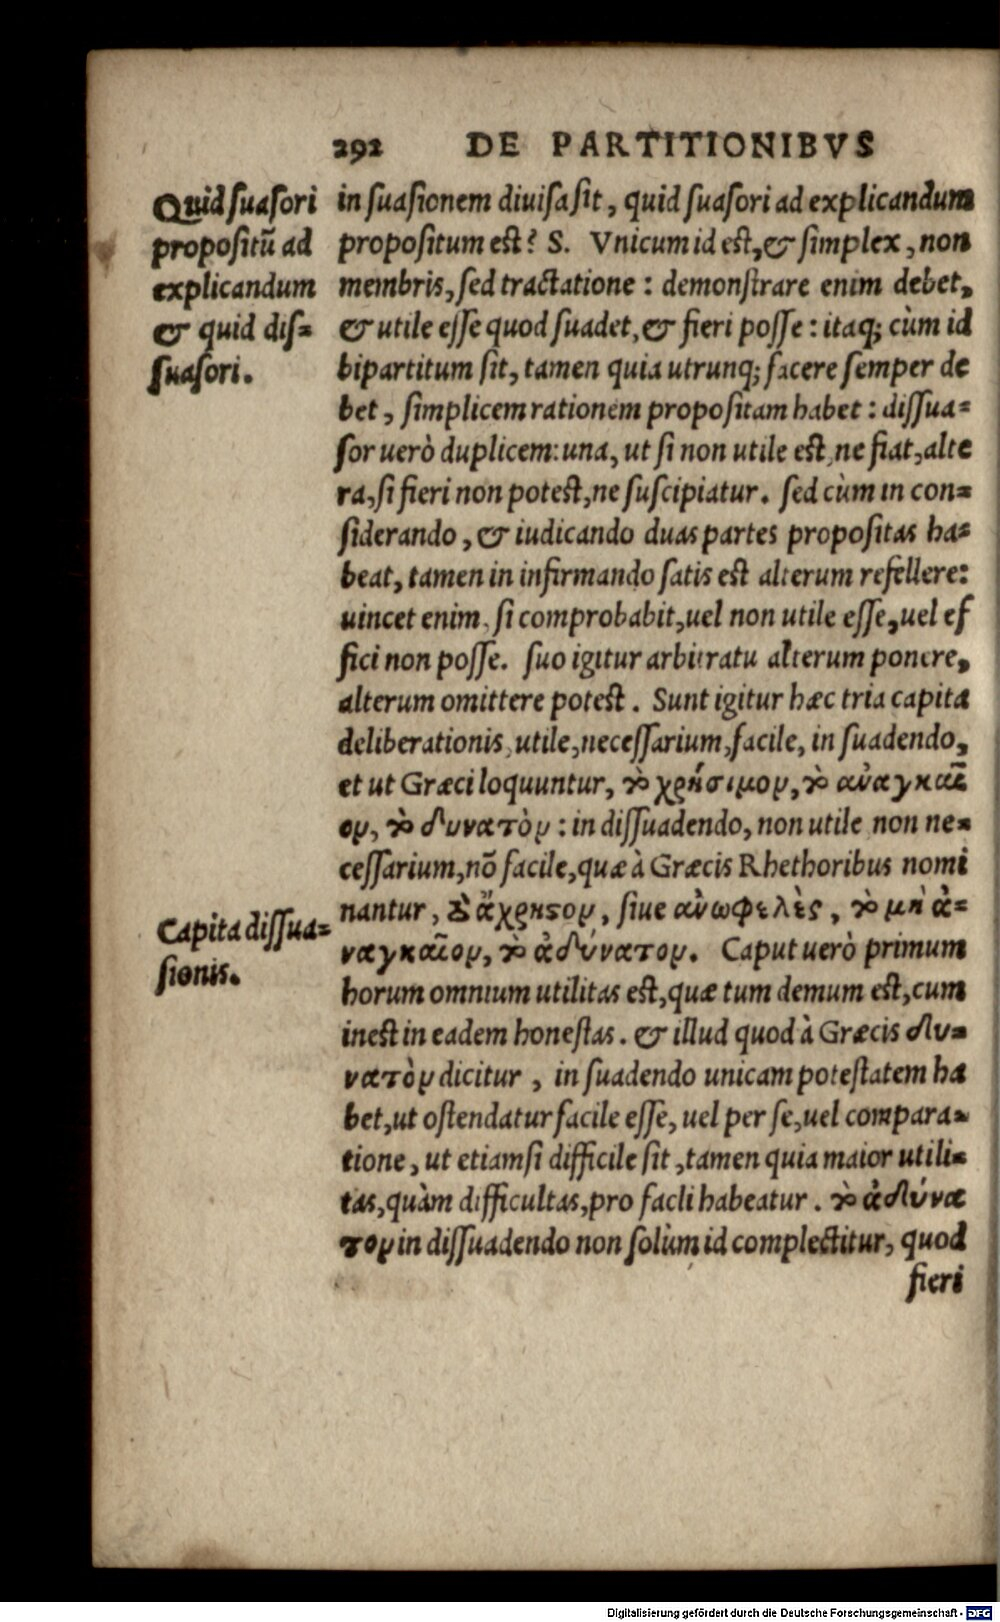 292 DE PARTITIONIBVS
Quid suasori
propositū ad
explicandum
& quid dis=
suasori.
in suasionem diuisa sit, quid suasori ad explicandum
propositum est? S. Vnicum id est, & simplex, non
membris, sed tractatione: demonstrare enim debet,
& utile esse quod suadet, & fieri posse: itaq; cùm id
bipartitum sit, tamen quia utrunq; facere semper de
bet, simplicem rationem propositam habet: dissua=
sor uerò duplicem: una, ut si non utile est, ne fiat, alte
ra, si fieri non potest, ne suscipiatur. sed cùm in con=
siderando, & iudicando duas partes propositas ha=
beat, tamen in infirmando satis est alterum refellere:
uincet enim, si comprobabit, uel non utile esse, uel ef
fici non posse. suo igitur arbitratu alterum ponere,
alterum omittere potest. Sunt igitur hæc tria capita
deliberationis, utile, necessarium, facile, in suadendo,
et ut Græci loquuntur, τὸ χρήσιμον, τὸ ἀναγκαῖ
ον, τὸ δυνατὸν: in dissuadendo, non utile non ne=
cessarium, nō facile, quæ à Græcis Rhethoribus nomi
nantur, τὸ ἄχρηστον, siue ἀνωφελὲς, τὸ μὴ ἀ=
ναγκαῖον, τὸ ἀδύνατον. Caput uerò primum
horum omnium utilitas est, quæ tum demum est, cum
inest in eadem honestas. & illud quod à Græcis δυ=
νατὸν dicitur, in suadendo unicam potestatem ha
bet, ut ostendatur facile esse, uel per se, uel compara=
tione, ut etiamsi difficile sit, tamen quia maior utili=
tas, quàm difficultas, pro facli habeatur. τὸ ἀδύνα
τον in dissuadendo non solùm id complectitur, quod
fieri
Capita dissua=
sionis.
Digitalisierung gefördert durch die Deutsche Forschungsgemeinschaft - DFG